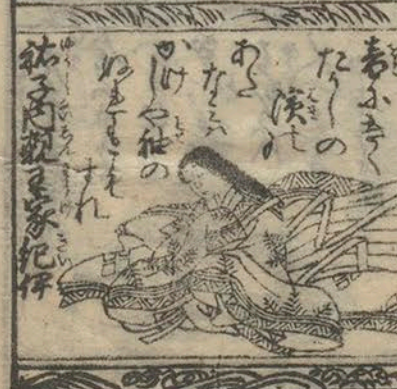 音にきく
たかしの
濱の
あた
なみハ
かけしや袖の
ぬれもこそ
すれ
祐子内親王家紀伊